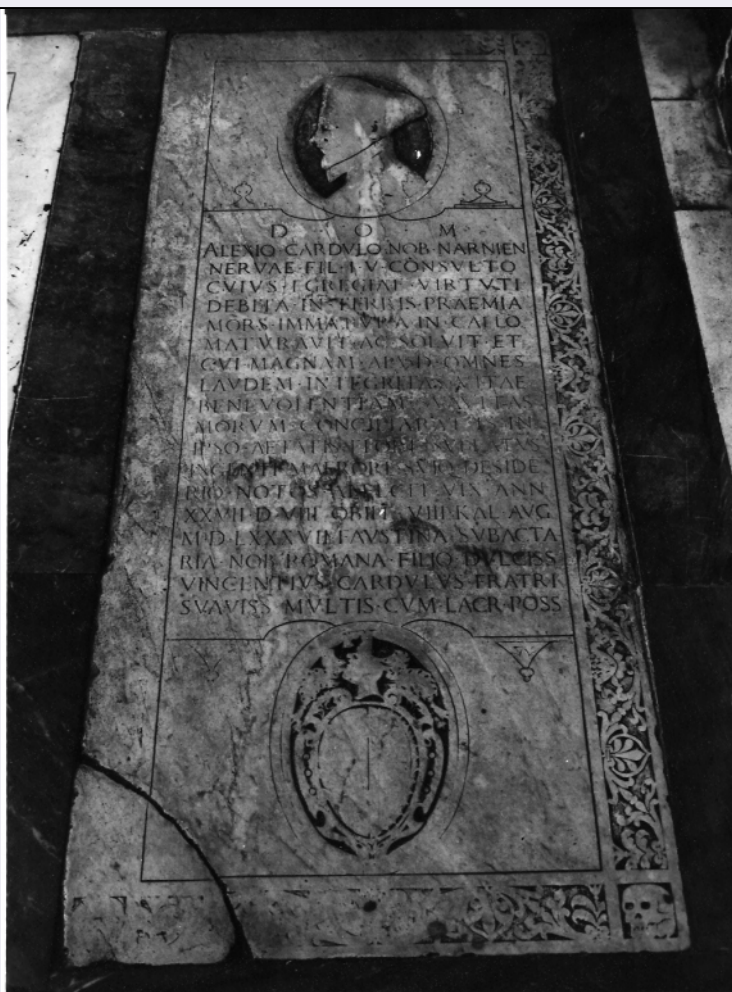 D O M
ALEXIO·CARDVLO·NOB·NARNIEN
NERVAE·FIL·I·V·CONSVLTO
CVIVS·EGREGIAE·VIRTVTI
DEBITA·IN·TERRIS·PRAEMIA
MORS·IMMATVRA·IN·CAELO
MATVRAVIT·AC·SOLVIT·ET
CVI·MAGNAM·APVD·OMNES
LAVDEM·INTEGRITAS·VITAE
BENEVOLENTIAM·SVAVITAS
MORVM·CONCILIARAT·IS·IN
IPSO·AETATIS·FLORE·SVBLATVS
INGENTI·MAERORE·SVI·DESIDE
RIO·NOTOS·AFFECIT·VIX·ANN
XXVII·D·VIII·OBIIT·VIII·KAL·AVG
FAVSTINA·SVBACTA
RIA·NOB·ROMANA·FILIO·DVLCISS
VINCENTIVS·CARDVLVS·FRATRI
SVAVISS·MVLTIS·CVM·LACR·POSS